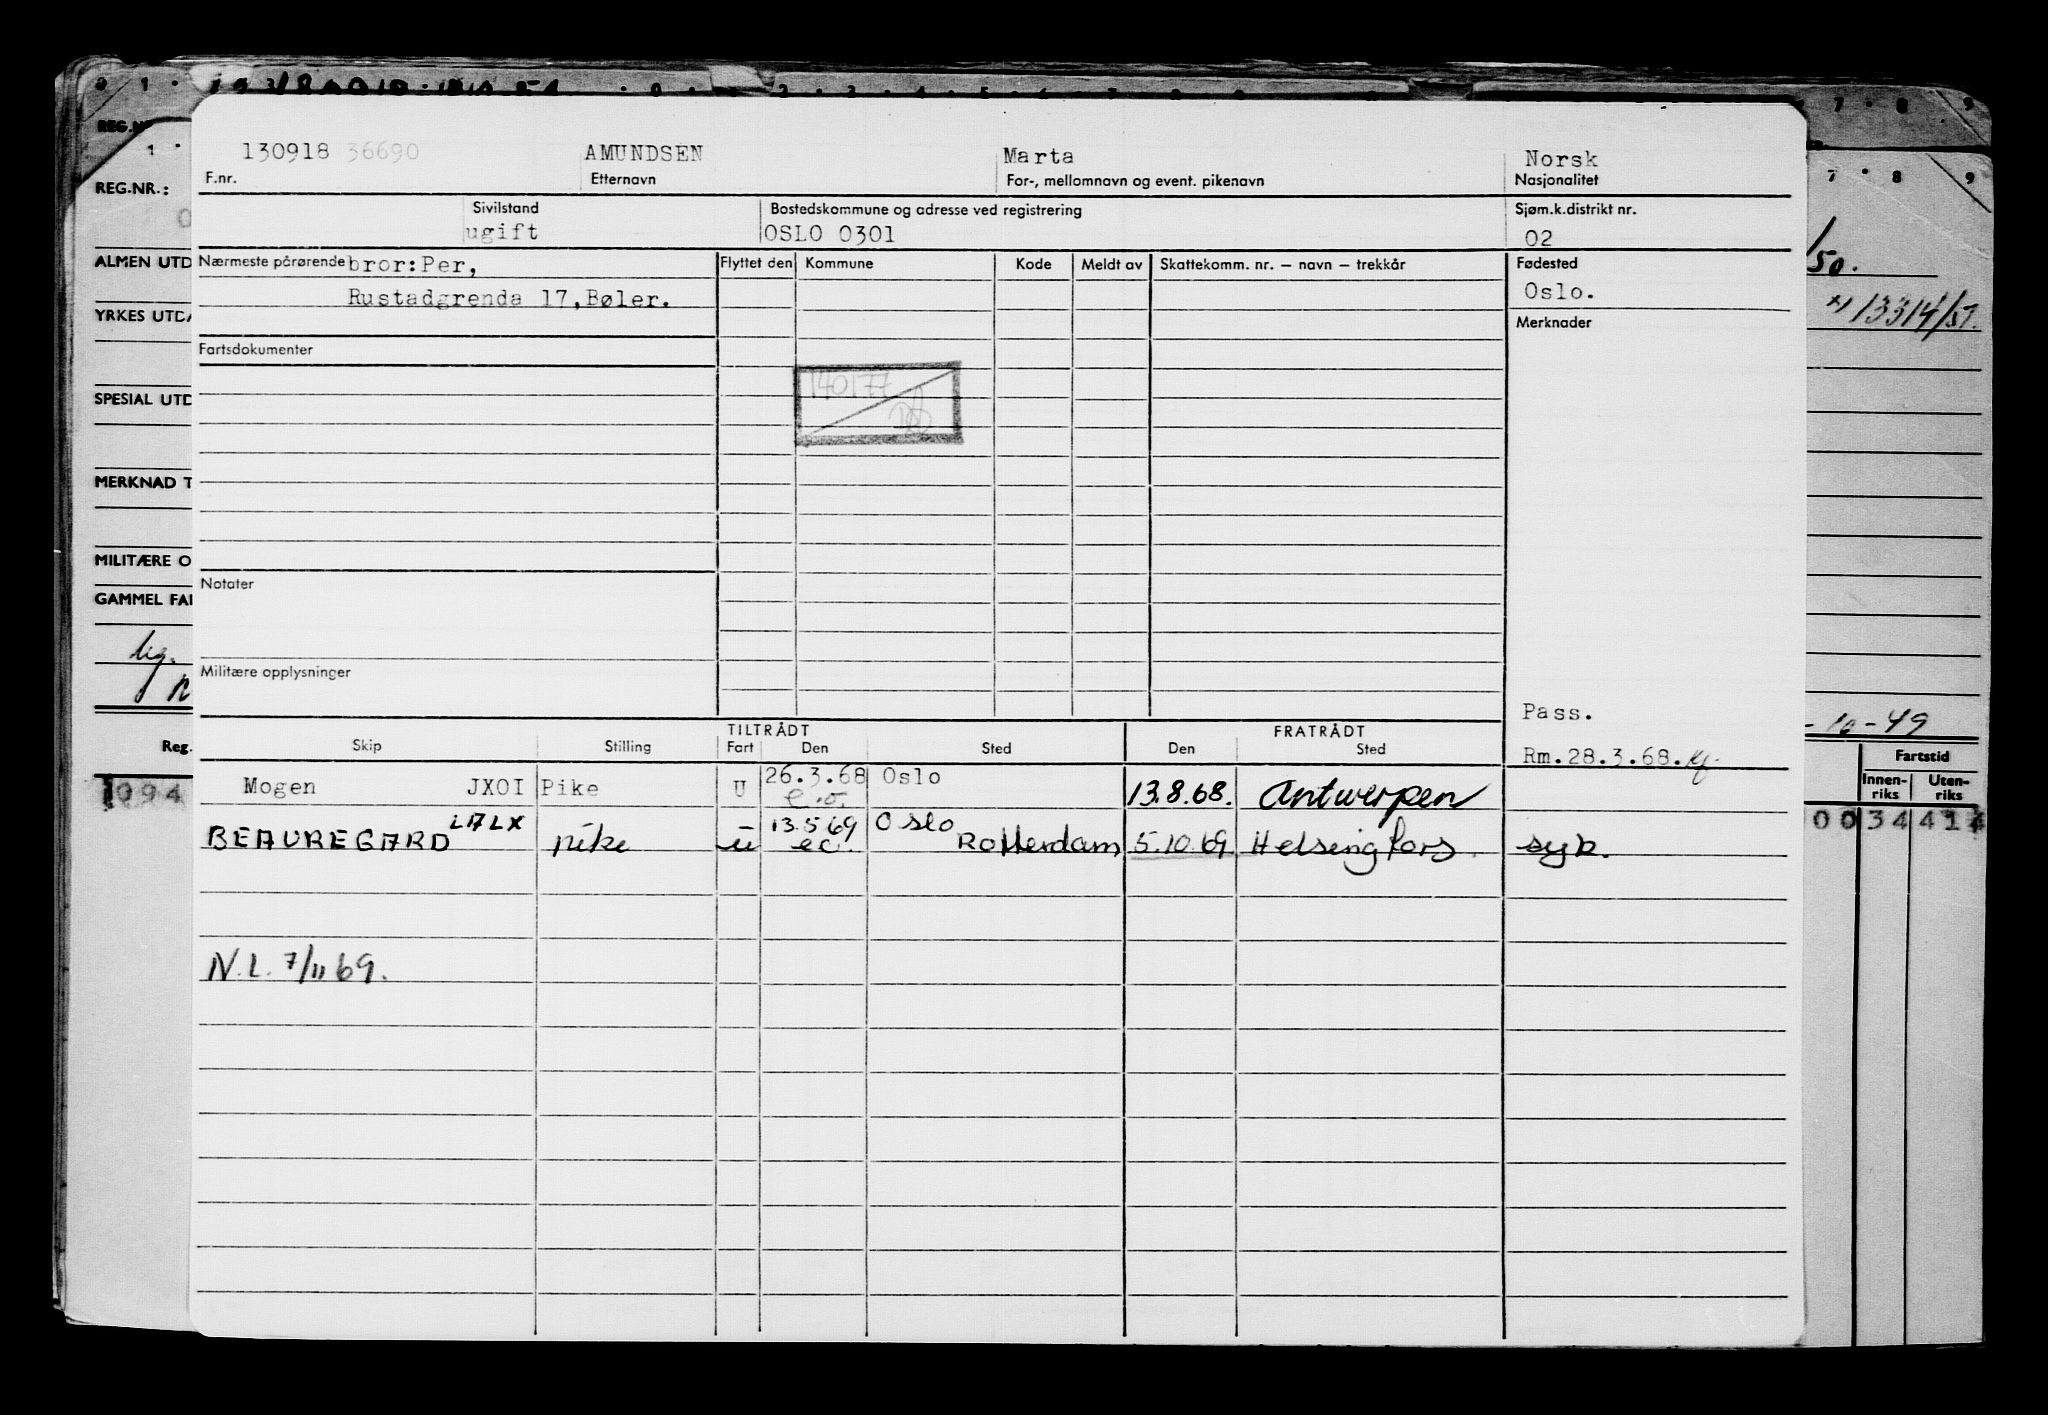 REG.NR.:
ALMEN UTD
YRKES UTDA
SPESIAL UTD
MERKNAD T
MILITÆRE O
GAMMEL FAR
Reg.
1094
130918 36690 AMUNDSEN Marta Norsk
F.nr. Etternavn For-, mellomnavn og event. pikenavn Nasjonalitet
Sivilstand Bostedskommune og adresse ved registrering Sjøm.k.distrikt nr.
ugift OSLO 0301 02
Nærmeste pårørende bror:Per, Flyttet den Kommune Kode Meldt av Skattekomm. nr. – navn – trekkår Fødested
Rustadgrenda 17,Bøler. Oslo.
Merknader
Fartsdokumenter
140177
Notater
Militære opplysninger
Pass.
TILTRÅDT FRATRÅDT
Skip Stilling Fart Den Sted Den Sted Rm.28.3.68.
Mogen JXOI Pike U 26.3.68 Oslo 13.8.68. Antwerpen
e.o.
BEAUREGARD LALX pike u 13.5 69 Oslo Rotterdam 5.10.69. Helsingfors syk.
eo
N.L. 7/11 69.
/50.
13314/57.
-10-49
Fartstid
Innen-riks Uten-riks
00 34 414
7 8 9
7 8 9